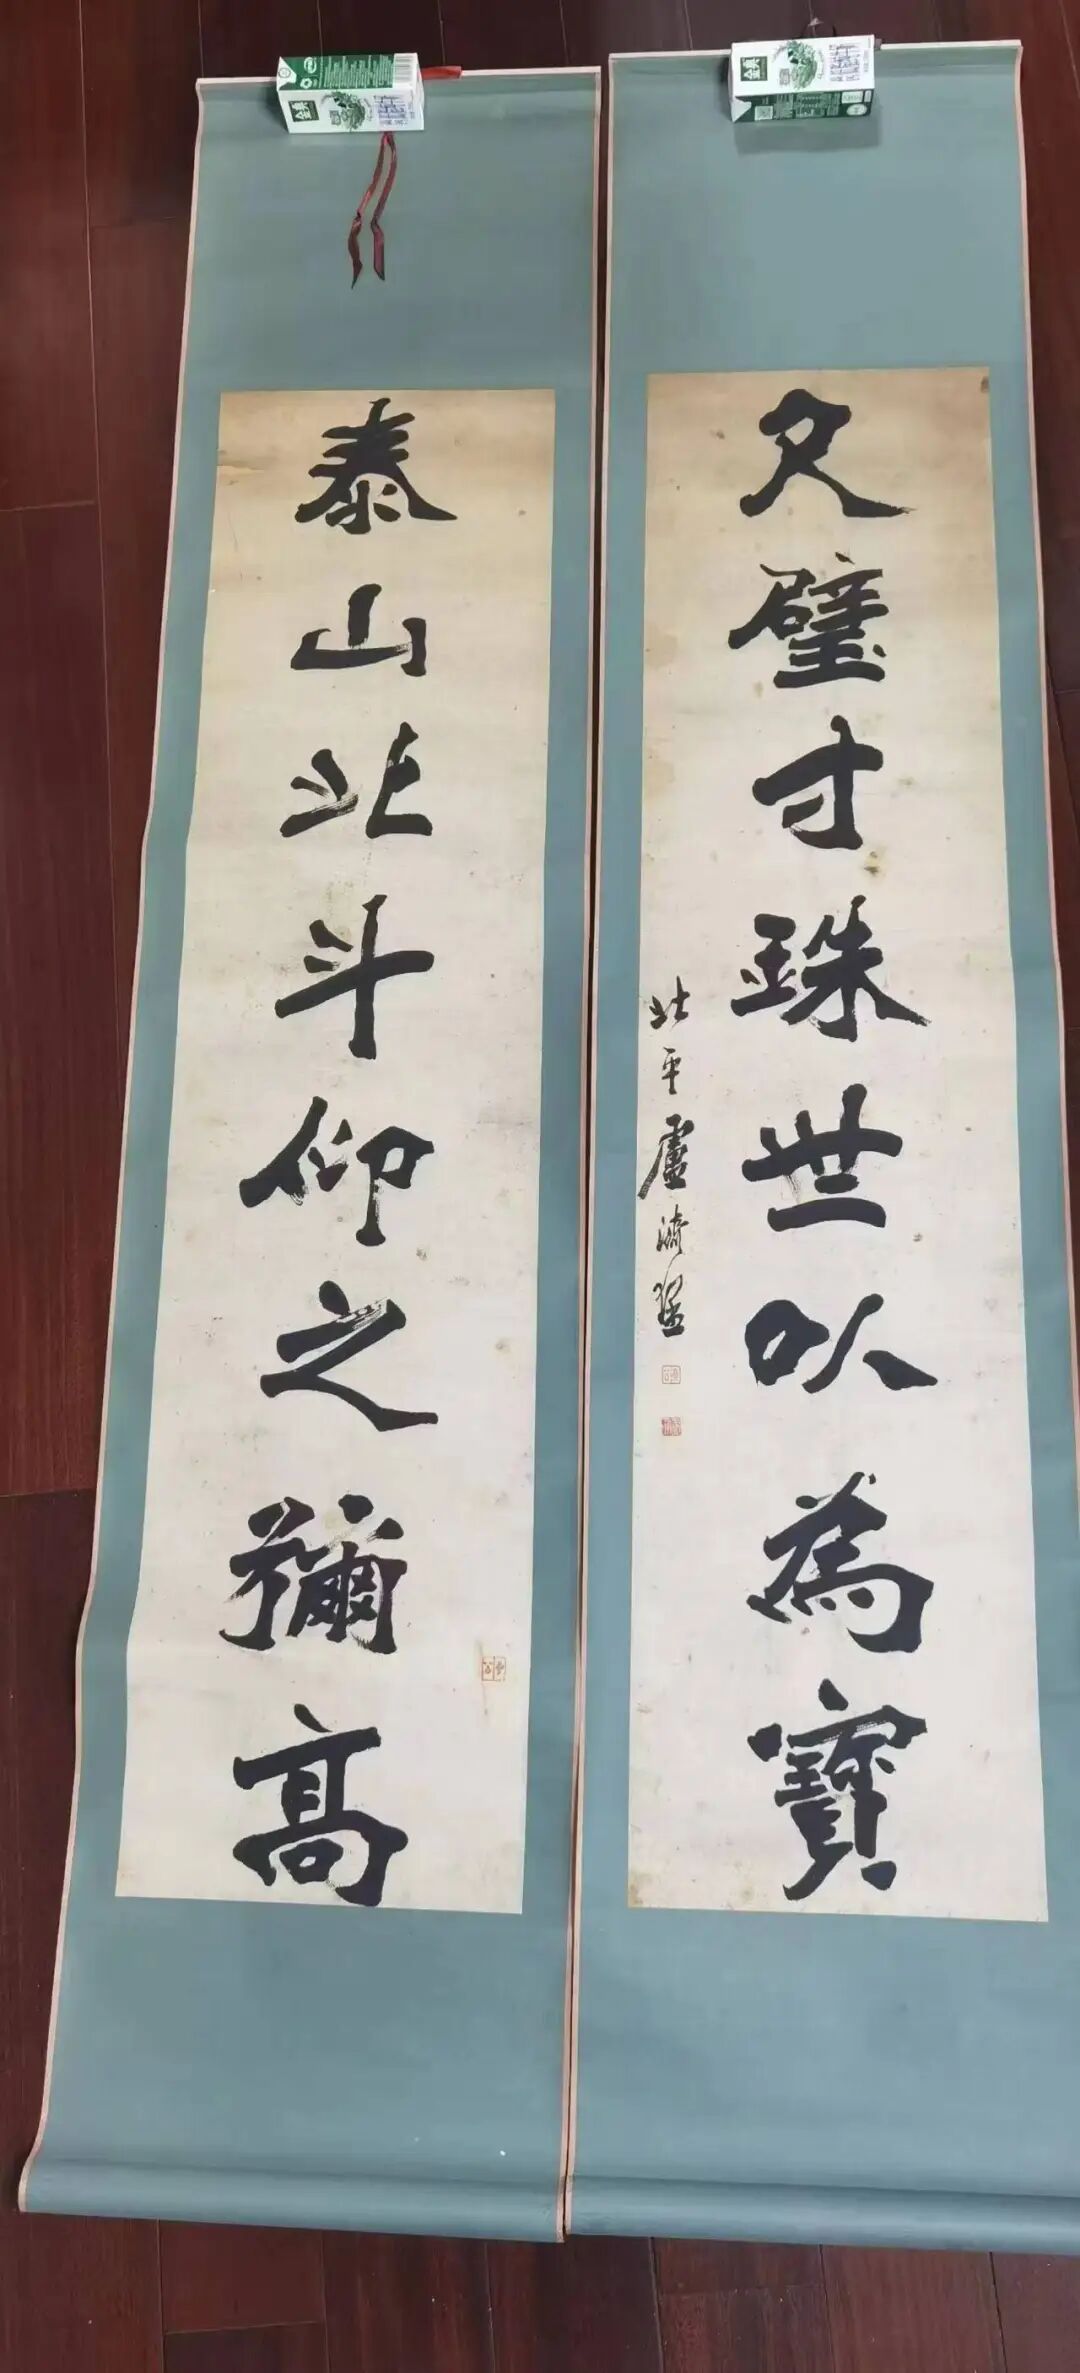 尺璧寸珠世以為寶
北平盧
泰山北斗仰之彌高
金典
金典